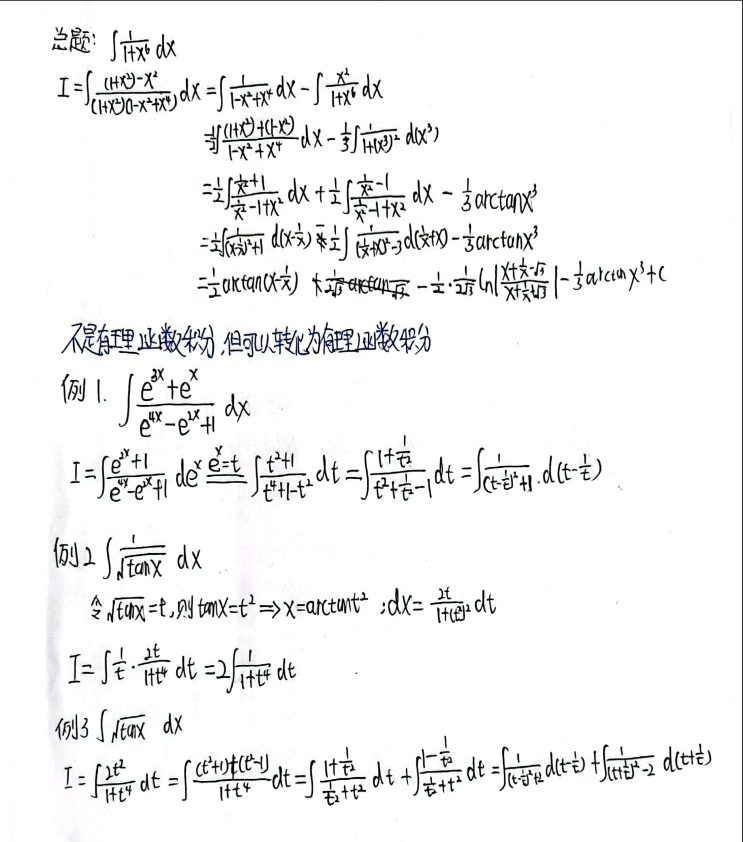 总题: ∫ 1/(1+x⁶) dx
I = ∫ ((1+x²)-x²)/((1+x²)(1-x²+x⁴)) dx = ∫ 1/(1-x²+x⁴) dx - ∫ x²/(1+x⁶) dx
= 1/2 ∫ ((1+x²)+(1-x²))/(1-x²+x⁴) dx - 1/3 ∫ 1/(1+(x³)²) d(x³)
= 1/2 ∫ (1/x²+1)/(1/x²-1+x²) dx + 1/2 ∫ (1/x²-1)/(1/x²-1+x²) dx - 1/3 arctanx³
= 1/2 ∫ 1/((x-1/x)²+1) d(x-1/x) - 1/2 ∫ 1/((1/x+x)²-3) d(1/x+x) - 1/3 arctanx³
= 1/2 arctan(x-1/x) - 1/2 · 1/(2√3) ln|(x+1/x-√3)/(x+1/x+√3)| - 1/3 arctan x³+C
不是有理函数积分,但可以转化为有理函数积分
例1. ∫ (e³ˣ+eˣ)/(e⁴ˣ-e²ˣ+1) dx
I = ∫ (e²ˣ+1)/(e⁴ˣ-e²ˣ+1) deˣ eˣ=t ∫ (t²+1)/(t⁴+1-t²) dt = ∫ (1+1/t²)/(t²+1/t²-1) dt = ∫ 1/((t-1/t)²+1) · d(t-1/t)
例2 ∫ 1/√tanx dx
令√tanx=t,则tanx=t² ⇒ x=arctant² ; dx= 2t/(1+(t²)²) dt
I = ∫ 1/t · 2t/(1+t⁴) dt = 2∫ 1/(1+t⁴) dt
例3 ∫ √tanx dx
I = ∫ 2t²/(1+t⁴) dt = ∫ ((t²+1)+(t²-1))/(1+t⁴) dt = ∫ (1+1/t²)/(1/t²+t²) dt + ∫ (1-1/t²)/(1/t²+t²) dt = ∫ 1/((t-1/t)²+2) d(t-1/t) + ∫ 1/((t+1/t)²-2) d(t+1/t)